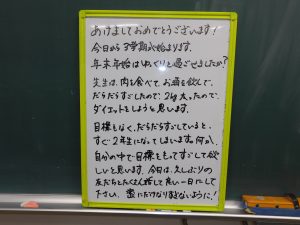 あけましておめでとうございます！
今日から3学期が始まります。
年末年始はゆっくりと過ごせましたか？
先生は、肉を食べて、お酒を飲んで、
だらだらすごしたので、2kg太ったので、
ダイエットをしようと思います。
目標もなく、だらだらすごしていると、
すぐ2年生になってしまいます。何か、
自分の中で目標をもってすごして欲
しいと思います。今日は、久しぶりの
友だちとたくさん話して良い一日にして
下さい。密にだけなりすぎないように！